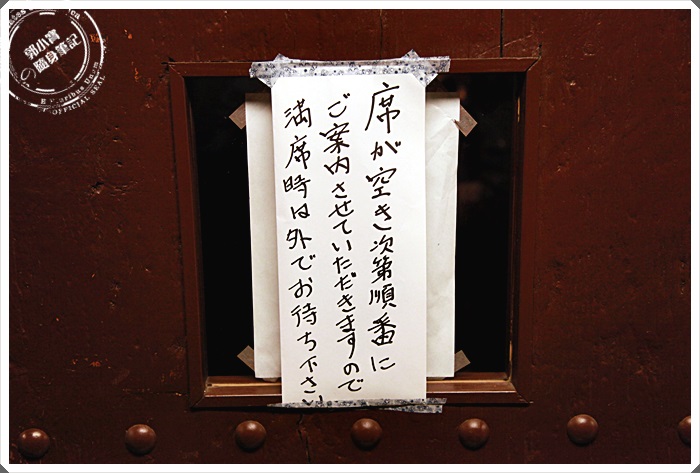 席が空き次第順番に
ご案内させていただきますので
満席時は外でお待ち下さい
郭小寶
の隨身筆記
OFFICIAL SEAL